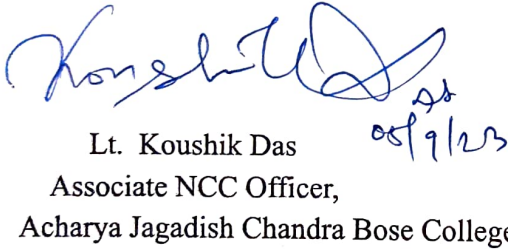 Koushik Das
05/9/23
Lt. Koushik Das
Associate NCC Officer,
Acharya Jagadish Chandra Bose College